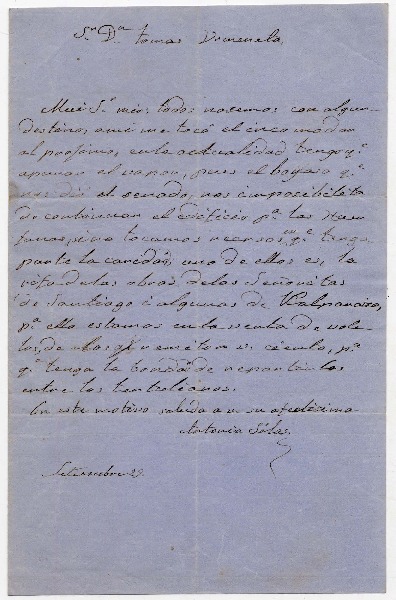 Sr Dn Tomas Domensla,
Mui Sr mio: todos nasemos con algun
destino, a mi me tocó el incomodar
al projimo, en la actualidad tengo qe
apurar el vapor, pues el bocaso qe
nos dió el senado, nos imposibilita
de continuar el edificio pa las Huer
fanas, sino tocamos recursos, qe tenga
parte la caredad, uno de ellos es, la
rifa de las obras de las Señoritas
de Santiago é algunas de Valparaiso,
pa ello estamos en la venta de vole
tos, de ellos remito a V. ciento, pa
qe tenga la bondad de repartirlos
entre los
Con este motivo saluda a V su afectisima
Antonia Salas
Setiembre 29.